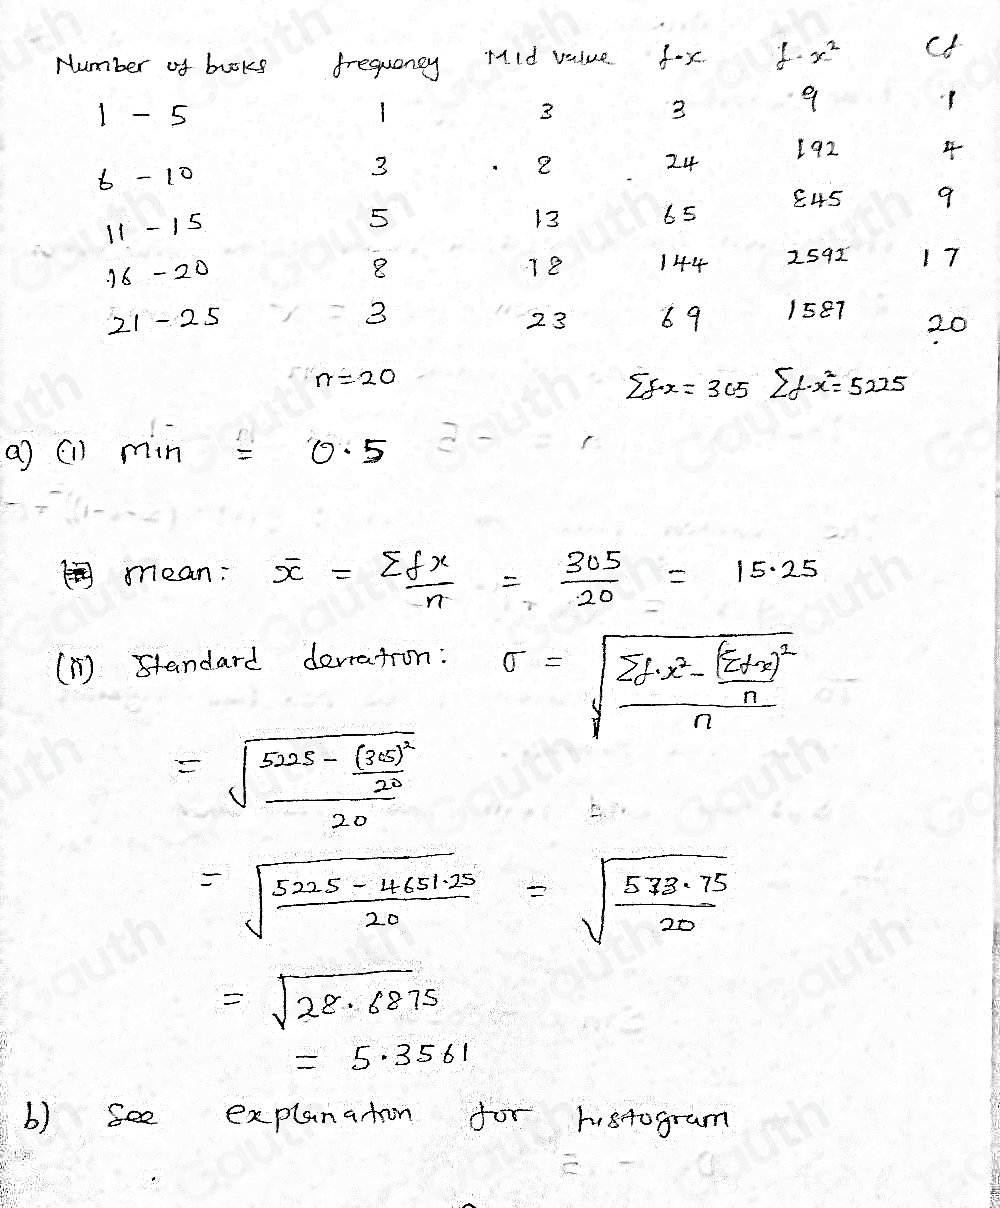 Number of books frequency Mid value f·x f·x² Cf
1 - 5 1 3 3 9 1
6 - 10 3 8 24 192 4
11 - 15 5 13 65 845 9
16 - 20 8 18 144 2592 17
21 - 25 3 23 69 1587 20
n=20 Σf·x = 305 Σf·x² = 5225
a) (i) min = 0.5
mean: x̄ = Σfx/n = 305/20 = 15.25
(ii) Standard deviation: σ = √((Σf·x² - (Σfx)²/n)/n)
= √((5225 - (305)²/20)/20)
= √((5225 - 4651.25)/20) = √(573.75/20)
= √28.6875
= 5.3561
b) See explanation for histogram